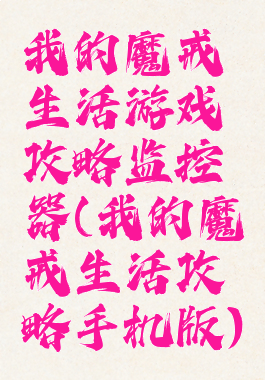 我的魔戒
生活游戏
攻略监控
器(我的魔
戒生活攻
略手机版)